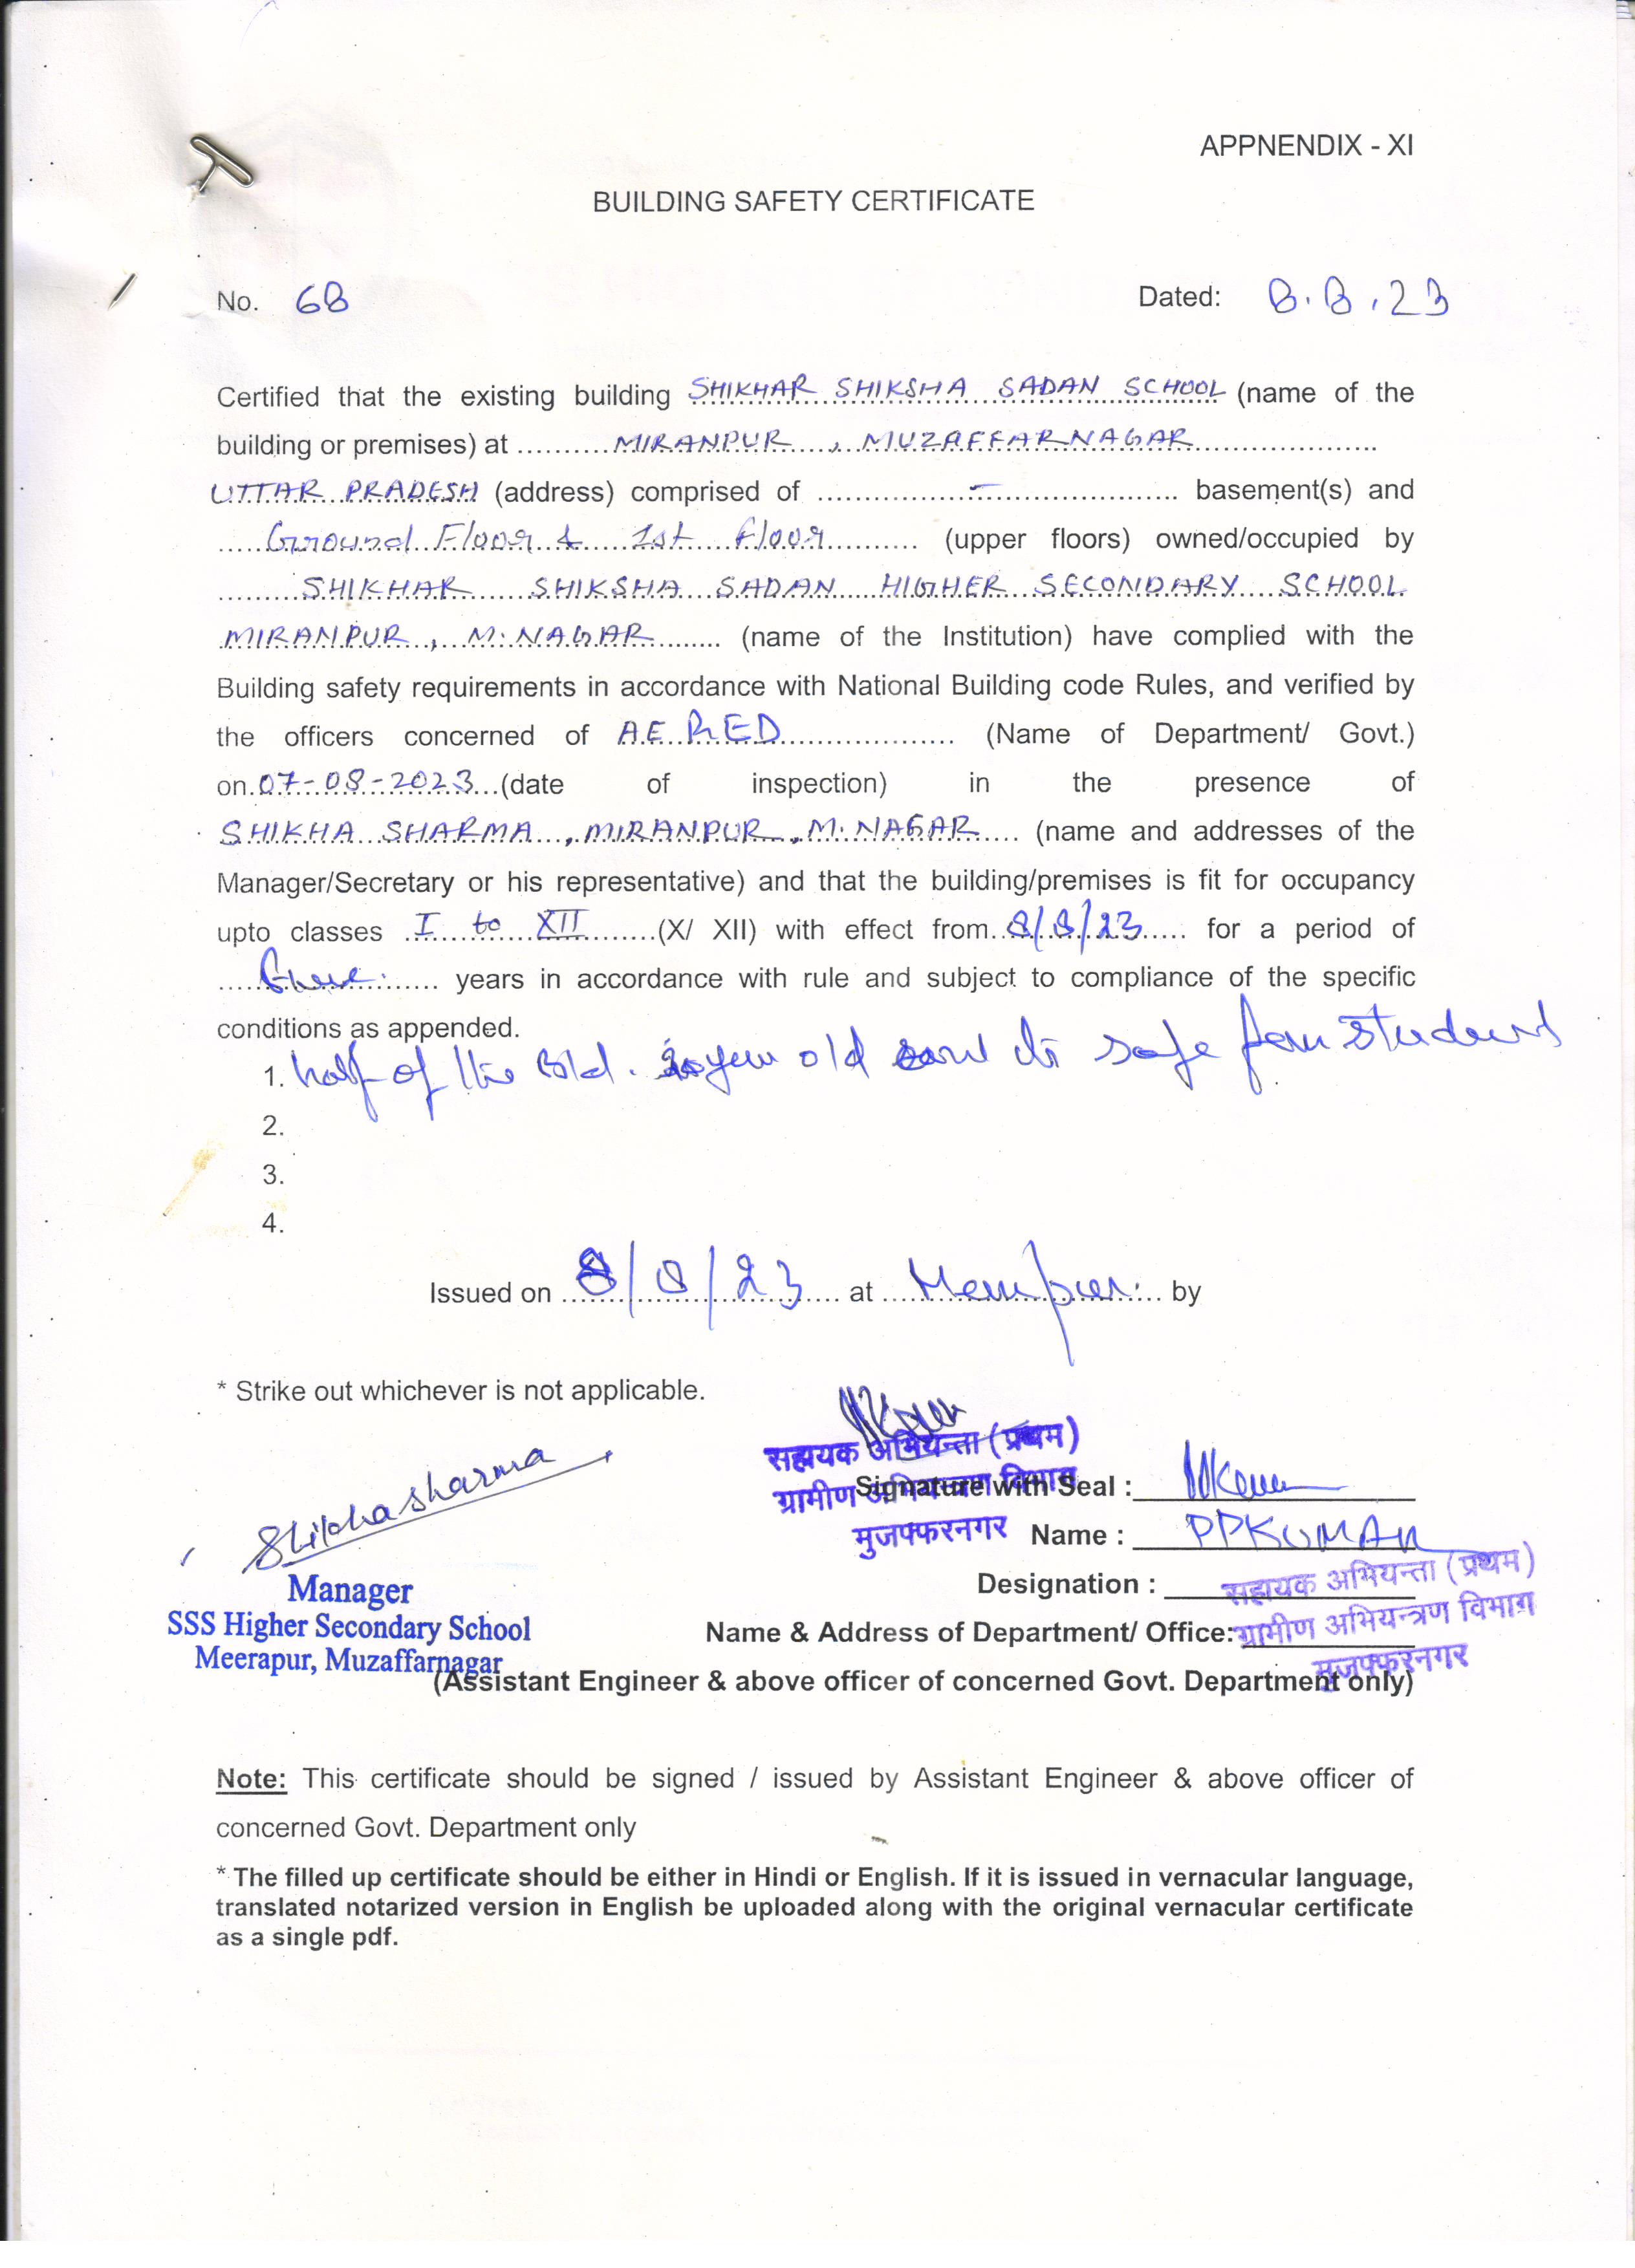 APPNENDIX - XI
BUILDING SAFETY CERTIFICATE
No. 68 Dated: 8.8.23
Certified that the existing building SHIKHAR SHIKSHA SADAN SCHOOL (name of the
building or premises) at ..........MIRANPUR, MUZAFFARNAGAR....................
UTTAR PRADESH (address) comprised of ................-.................... basement(s) and
.....Ground Floor & 1st Floor.......... (upper floors) owned/occupied by
.........SHIKHAR SHIKSHA SADAN HIGHER SECONDARY SCHOOL
MIRANPUR, M.NAGAR........ (name of the Institution) have complied with the
Building safety requirements in accordance with National Building code Rules, and verified by
the officers concerned of A.E. RED.................... (Name of Department/ Govt.)
on.07-08-2023...(date of inspection) in the presence of
SHIKHA SHARMA, MIRANPUR, M.NAGAR.... (name and addresses of the
Manager/Secretary or his representative) and that the building/premises is fit for occupancy
upto classes ..I to XII.......(X/ XII) with effect from..8/8/23..... for a period of
............ years in accordance with rule and subject to compliance of the specific
conditions as appended.
1. half of the old safe for student
2.
3.
4.
Issued on 8/8/23 at ............ by
* Strike out whichever is not applicable.
सहायक अभियन्ता (प्रथम)
ग्रामीण अभियन्त्रण विभाग
मुजफ्फरनगर
Signature with Seal :
Name : PPKUMAR
Designation : सहायक अभियन्ता (प्रथम)
Name & Address of Department/ Office: ग्रामीण अभियन्त्रण विभाग
मुजफ्फरनगर
Shikha Sharma
Manager
SSS Higher Secondary School
Meerapur, Muzaffarnagar
(Assistant Engineer & above officer of concerned Govt. Department only)
Note: This certificate should be signed / issued by Assistant Engineer & above officer of
concerned Govt. Department only
* The filled up certificate should be either in Hindi or English. If it is issued in vernacular language,
translated notarized version in English be uploaded along with the original vernacular certificate
as a single pdf.